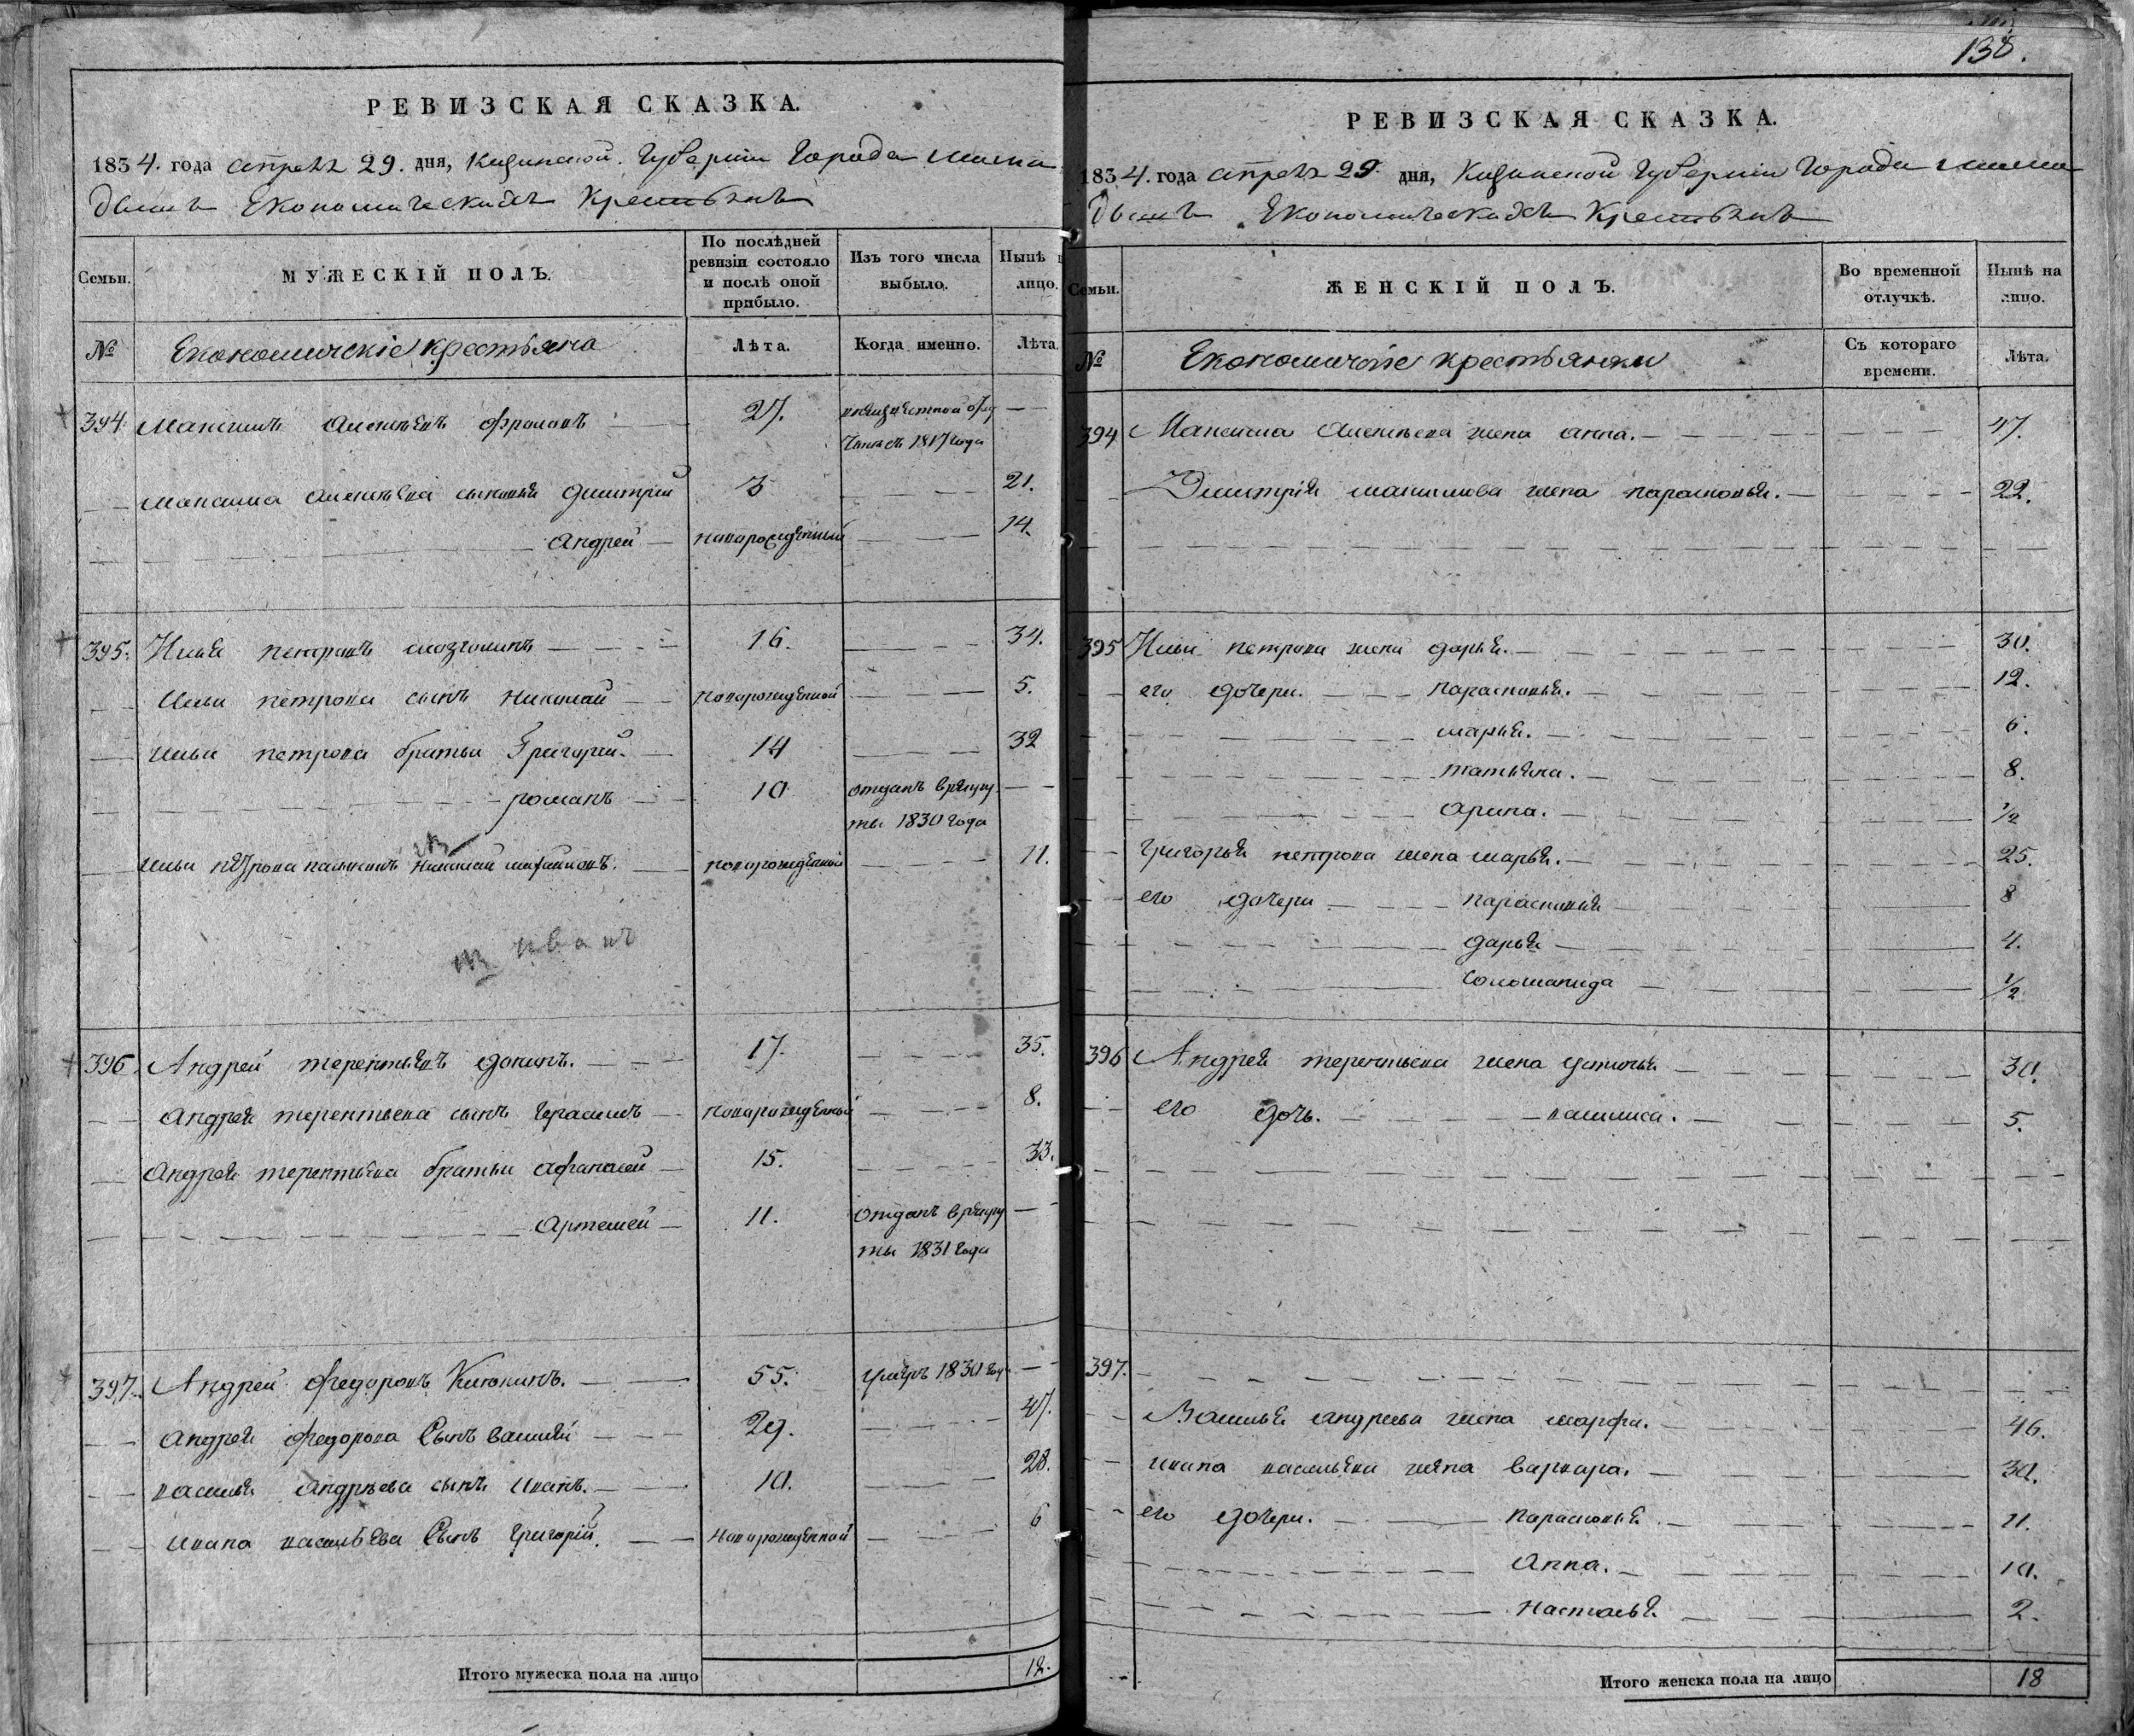 РЕВИЗСКАЯ СКАЗКА.
1834. года апреля 29. дня, Казанской Губернии Города Мама
дышъ Економическихъ Крестьянъ
Семьи.
МУЖЕСКІЙ ПОЛЪ.
По послѣдней ревизіи состояло и послѣ оной прибыло.
Изъ того числа выбыло.
Нынѣ на лицо.
№
Економическіе крестьяна
Лѣта.
Когда именно.
Лѣта.
394 Максимъ Алексѣевъ 27.
1817 года
Максима Алексѣева сыновья Дмитрій 3 21.
Андрей новорожденный 14.
395. Илья Петровъ 16. 34.
Ильи Петрова сынъ Николай новорожденной 5.
Ильи Петрова братьи Григорей 14 32
Романъ 10 отданъ врекру
ты 1830 года
Ильи Петрова Николай новорожденный 11.
Иванъ
396. Андрей Терентьевъ 17. 35.
Андрея Терентьева сынъ Герасимъ новорожденный 8.
Андрея Терентьева братьи Афанасей 15. 33.
Артемей 11. отданъ врекру
ты 1831 года
397. Андрей Федоровъ 55. умеръ 1830 года
Андрея Федорова Сынъ Василей 29. 47.
Василья Андреева сынъ Иванъ. 10. 28.
Ивана Васильева Сынъ Григорій. новорожденной 6
Итого мужеска пола на лицо 12.
138.
РЕВИЗСКАЯ СКАЗКА.
1834. года апреля 29. дня, Казанской Губернии Города Мама
дышъ Економическихъ Крестьянъ
Семьи.
ЖЕНСКІЙ ПОЛЪ.
Во временной отлучкѣ.
Нынѣ на лицо.
№
крестьянки
Съ котораго времени.
Лѣта.
394 Максима Алексѣева жена Анна. 47.
Дмитрія Максимова жена Парасковья. 22.
395 Ильи Петрова жена Дарья. 30.
его дочери. Парасковья. 12.
Марья. 6.
Татьяна. 8.
Арина. 1/2
Григорья Петрова жена Марья. 25.
его дочери Парасковья 8
Дарья 4.
Соломанида 1/2
396 Андрея Терентьева жена Устинья 30.
его дочь. Василиса. 5.
397.
Василья Андреева жена Марфа. 46.
Ивана Васильева жена Варвара. 30.
его дочери. Парасковья 11.
Анна. 10.
Настасья. 2.
Итого женска пола на лицо 18